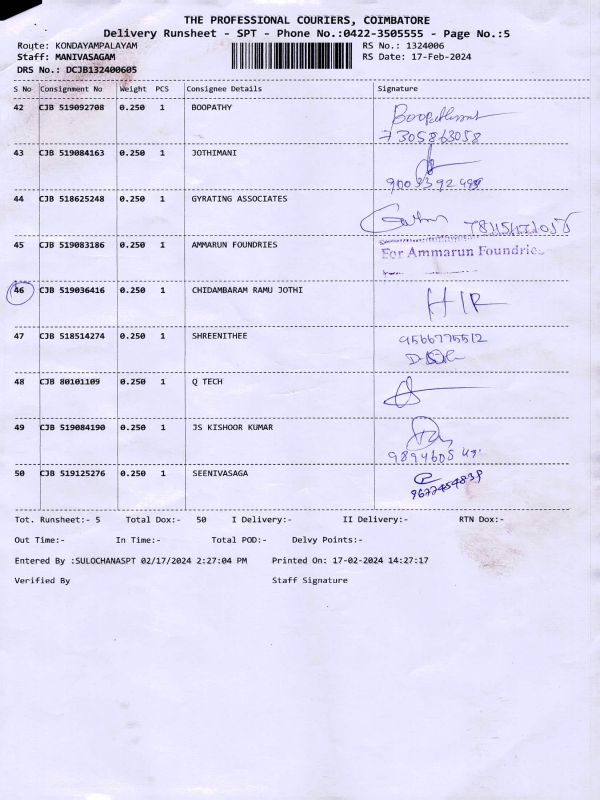 THE PROFESSIONAL COURIERS, COIMBATORE
Delivery Runsheet - SPT - Phone No.:0422-3505555 - Page No.:5
Route: KONDAYAMPALAYAM RS No.: 1324006
Staff: MANIVASAGAM RS Date: 17-Feb-2024
DRS No.: DCJB132400605
S No Consignment No Weight PCS Consignee Details Signature
42 CJB 519092708 0.250 1 BOOPATHY
7305863058
43 CJB 519084163 0.250 1 JOTHIMANI
44 CJB 518625248 0.250 1 GYRATING ASSOCIATES
45 CJB 519083186 0.250 1 AMMARUN FOUNDRIES
For Ammarun Foundries
46 CJB 519036416 0.250 1 CHIDAMBARAM RAMU JOTHI
47 CJB 518514274 0.250 1 SHREENITHEE
9566775512
48 CJB 80101109 0.250 1 Q TECH
49 CJB 519084190 0.250 1 JS KISHOOR KUMAR
50 CJB 519125276 0.250 1 SEENIVASAGA
Tot. Runsheet:- 5 Total Dox:- 50 I Delivery:- II Delivery:- RTN Dox:-
Out Time:- In Time:- Total POD:- Delvy Points:-
Entered By :SULOCHANASPT 02/17/2024 2:27:04 PM Printed On: 17-02-2024 14:27:17
Verified By Staff Signature